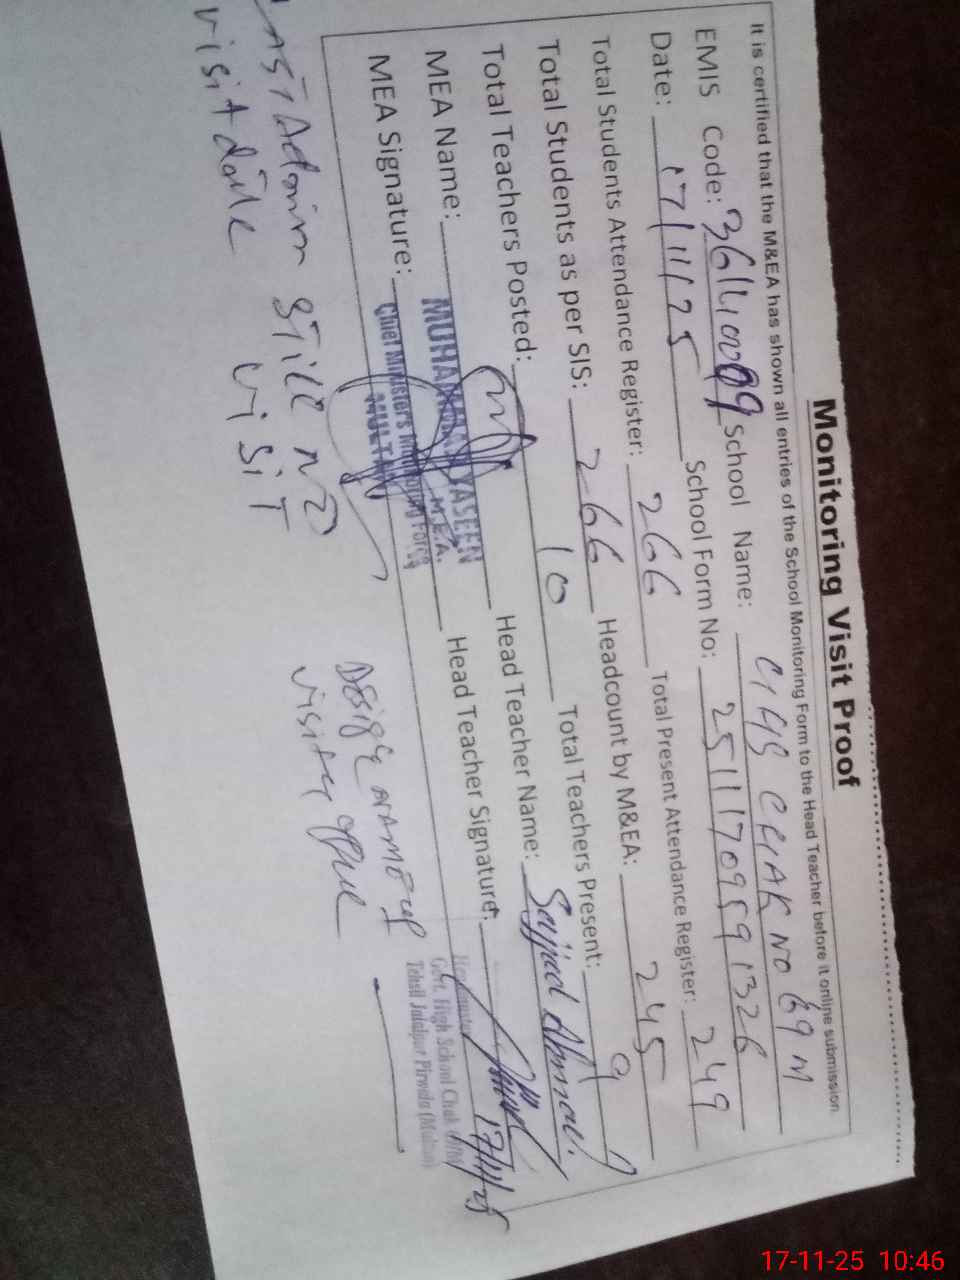 Monitoring Visit Proof
It is certified that the M&EA has shown all entries of the School Monitoring Form to the Head Teacher before it online submission.
EMIS Code: 36140009 School Name: GHS CHAK NO 69 M
Date: 17/11/25 School Form No: 25111709591326
Total Students Attendance Register: 266 Total Present Attendance Register: 249
Total Students as per SIS: 266 Headcount by M&EA: 245
Total Teachers Posted: 10 Total Teachers Present: 9
MEA Name: MUHAMMAD YASEEN Head Teacher Name: Sajjad Ahmad
M.E.A.
MEA Signature: Chief Minister's Monitoring Force Head Teacher Signature: 17/11/25
MULTAN
Headmaster
Govt. High School Chak
Tehsil Jalalpur Pirwala (Multan)
Last Admin still no
visit date visit
17-11-25 10:46